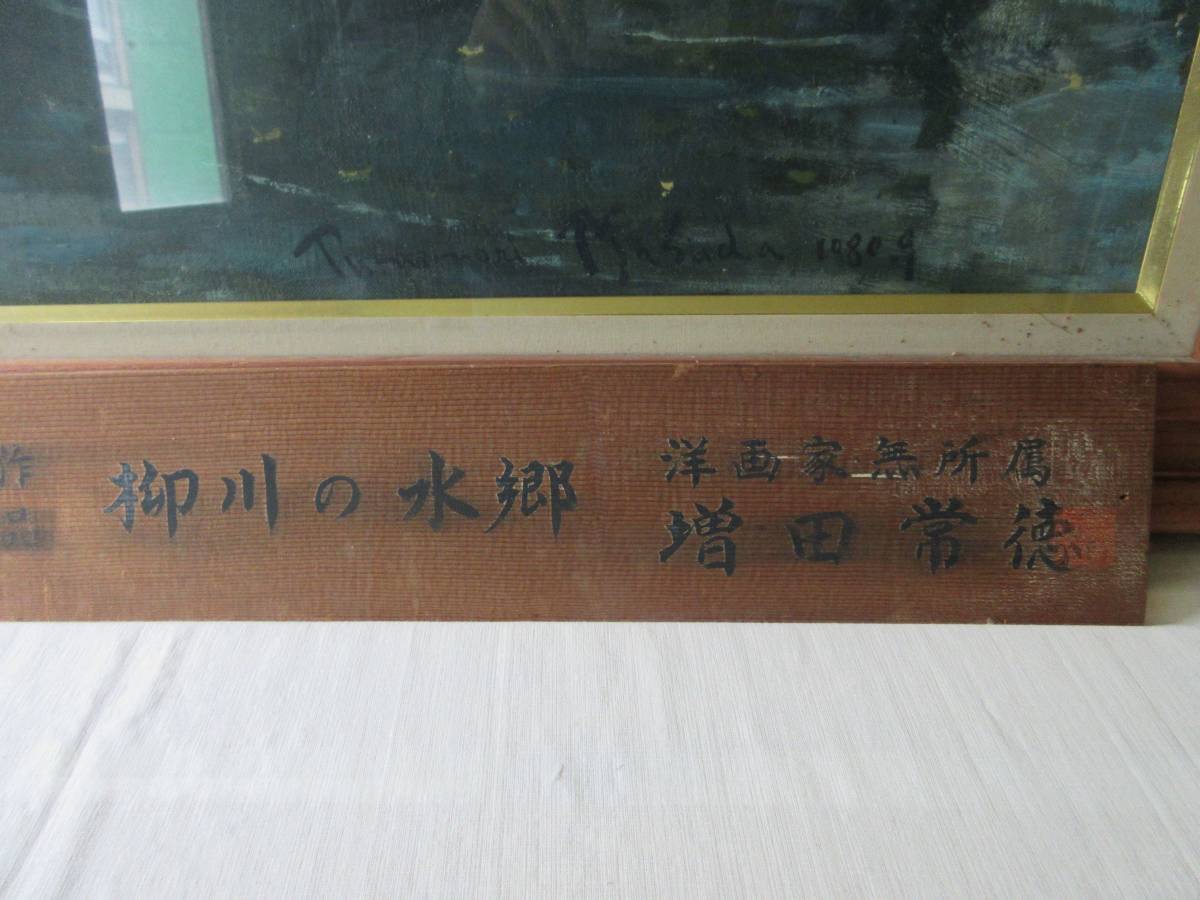 Tsunenori Masuda 1980.9
作品
柳川の水郷
洋画家無所属
増田常徳